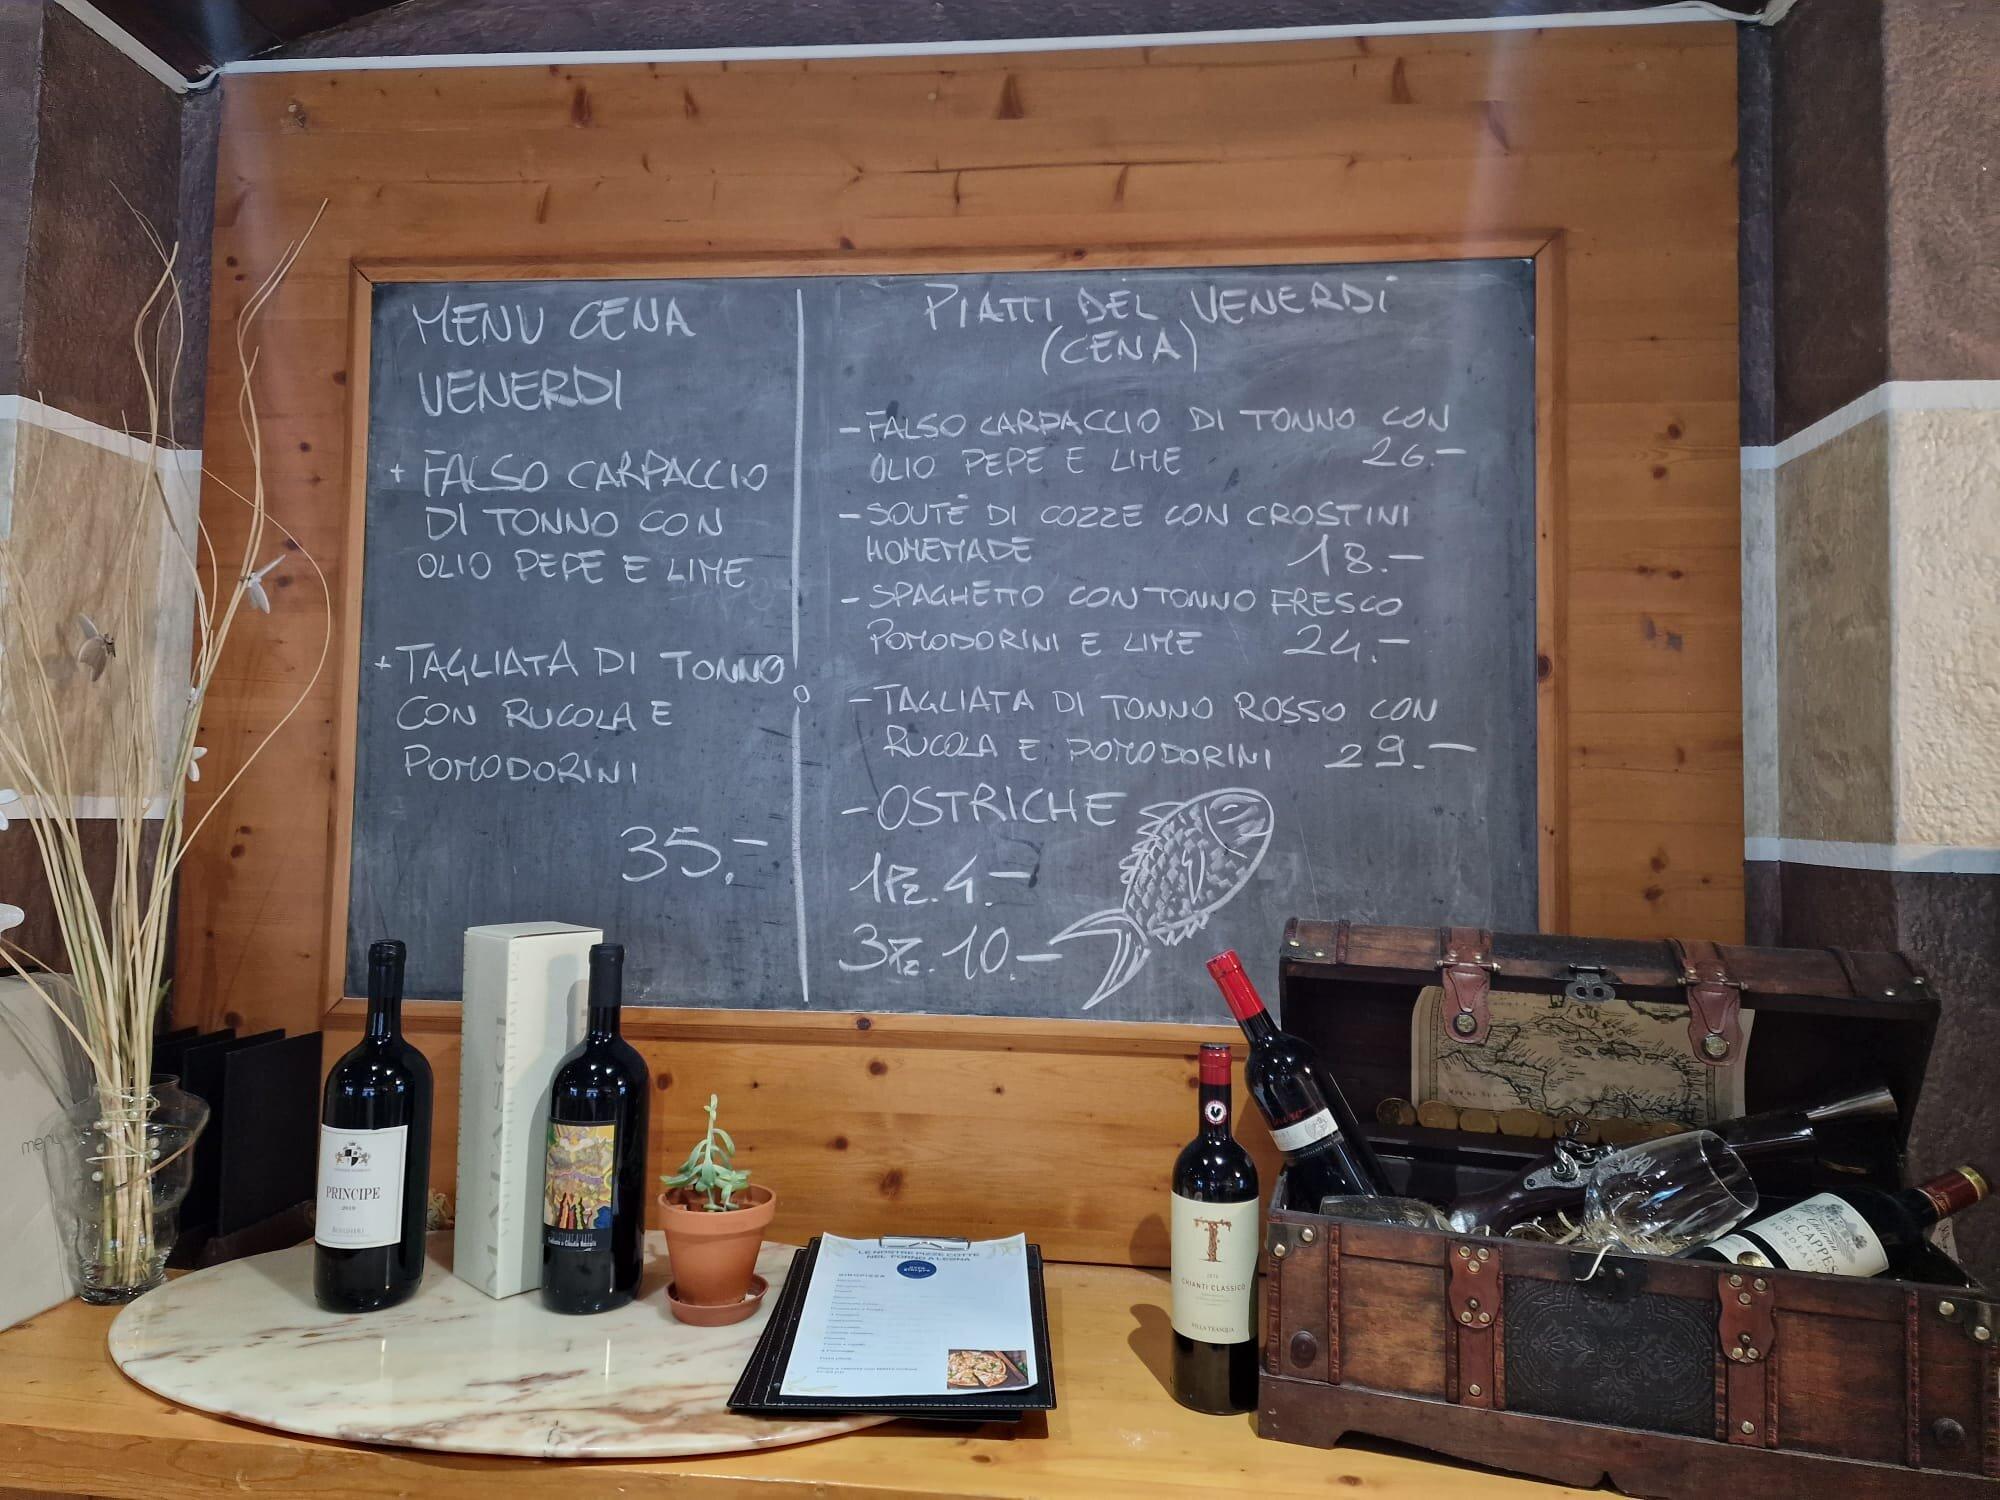 MENU CENA
VENERDI
+ FALSO CARPACCIO
DI TONNO CON
OLIO PEPE E LIME
+ TAGLIATA DI TONNO
CON RUCOLA E
POMODORINI
35.-
PIATTI DEL VENERDÌ
(CENA)
- FALSO CARPACCIO DI TONNO CON
OLIO PEPE E LIME 26.-
- SOUTÈ DI COZZE CON CROSTINI
HOMEMADE 18.-
- SPAGHETTO CON TONNO FRESCO
POMODORINI E LIME 24.-
- TAGLIATA DI TONNO ROSSO CON
RUCOLA E POMODORINI 29.-
- OSTRICHE
1Pz. 4.-
3Pz. 10.-
menu
PRINCIPE
2019
LE NOSTRE PIZZE COTTE
NEL FORNO A LEGNA
GIROPIZZA
T
CHIANTI CLASSICO
VILLA TRASQUA
CAPPES
BORDEAUX